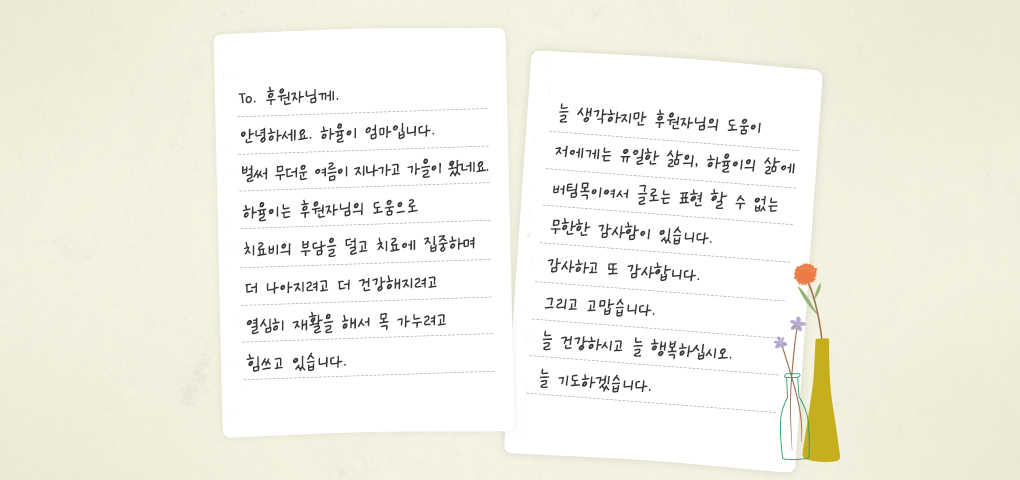 To. 후원자님께.
안녕하세요. 하율이 엄마입니다.
벌써 무더운 여름이 지나가고 가을이 왔네요.
하율이는 후원자님의 도움으로
치료비의 부담을 덜고 치료에 집중하며
더 나아지려고 더 건강해지려고
열심히 재활을 해서 목 가누려고
힘쓰고 있습니다.
늘 생각하지만 후원자님의 도움이
저에게는 유일한 삶의, 하율이의 삶에
버팀목이여서 글로는 표현 할 수 없는
무한한 감사함이 있습니다.
감사하고 또 감사합니다.
그리고 고맙습니다.
늘 건강하시고 늘 행복하십시오.
늘 기도하겠습니다.